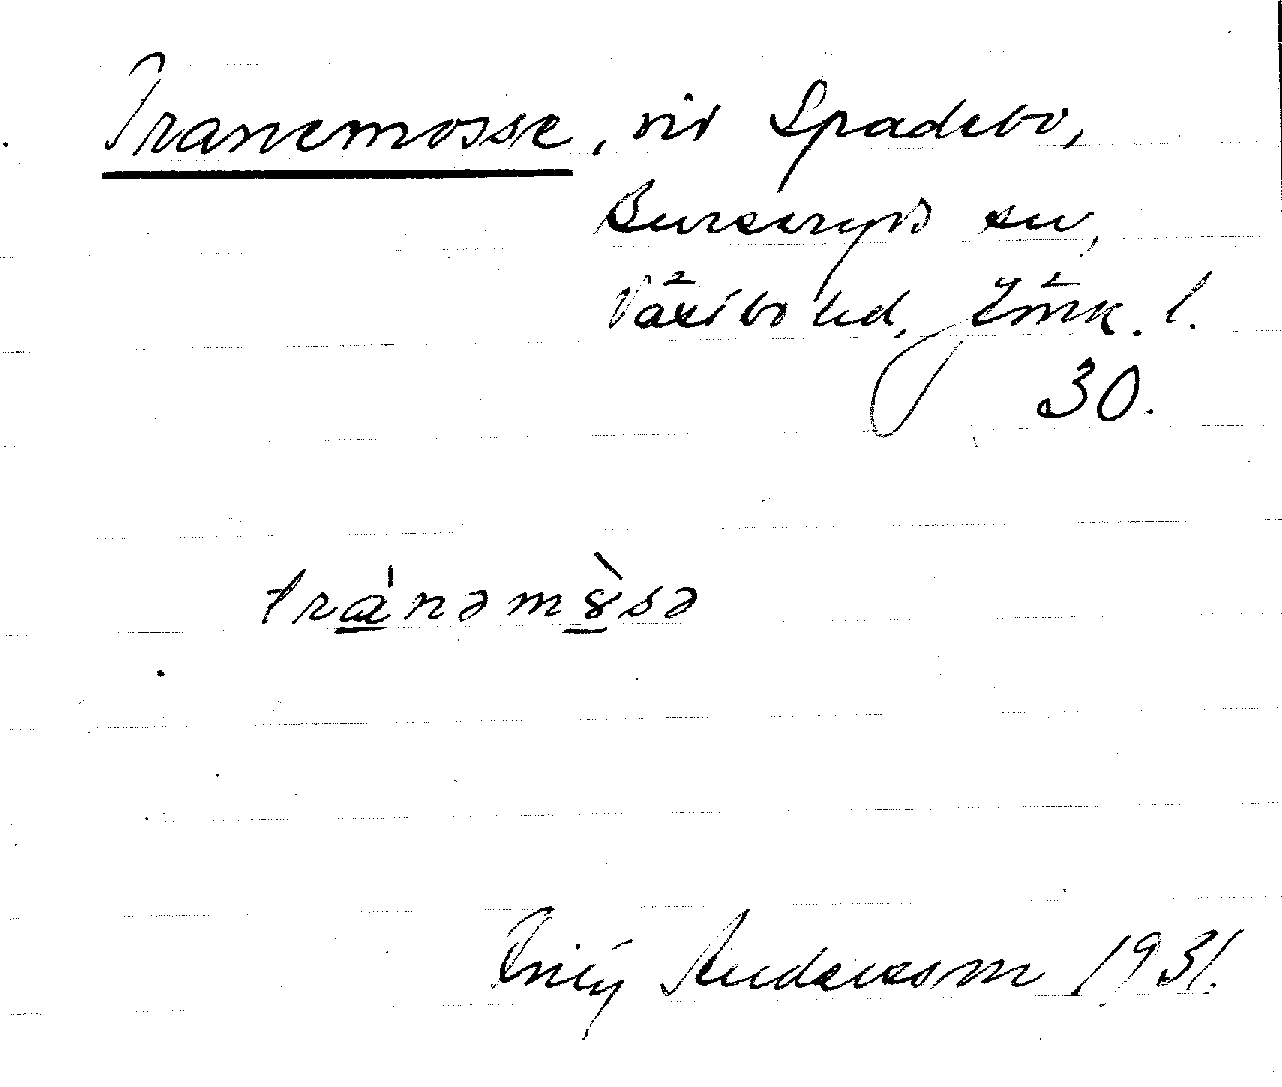 Tranemosse, vid Spadebo,
Burseryds sn,
Västbo hd, Jönk. l.
30.
tránəmòsə
Andersson 1931.